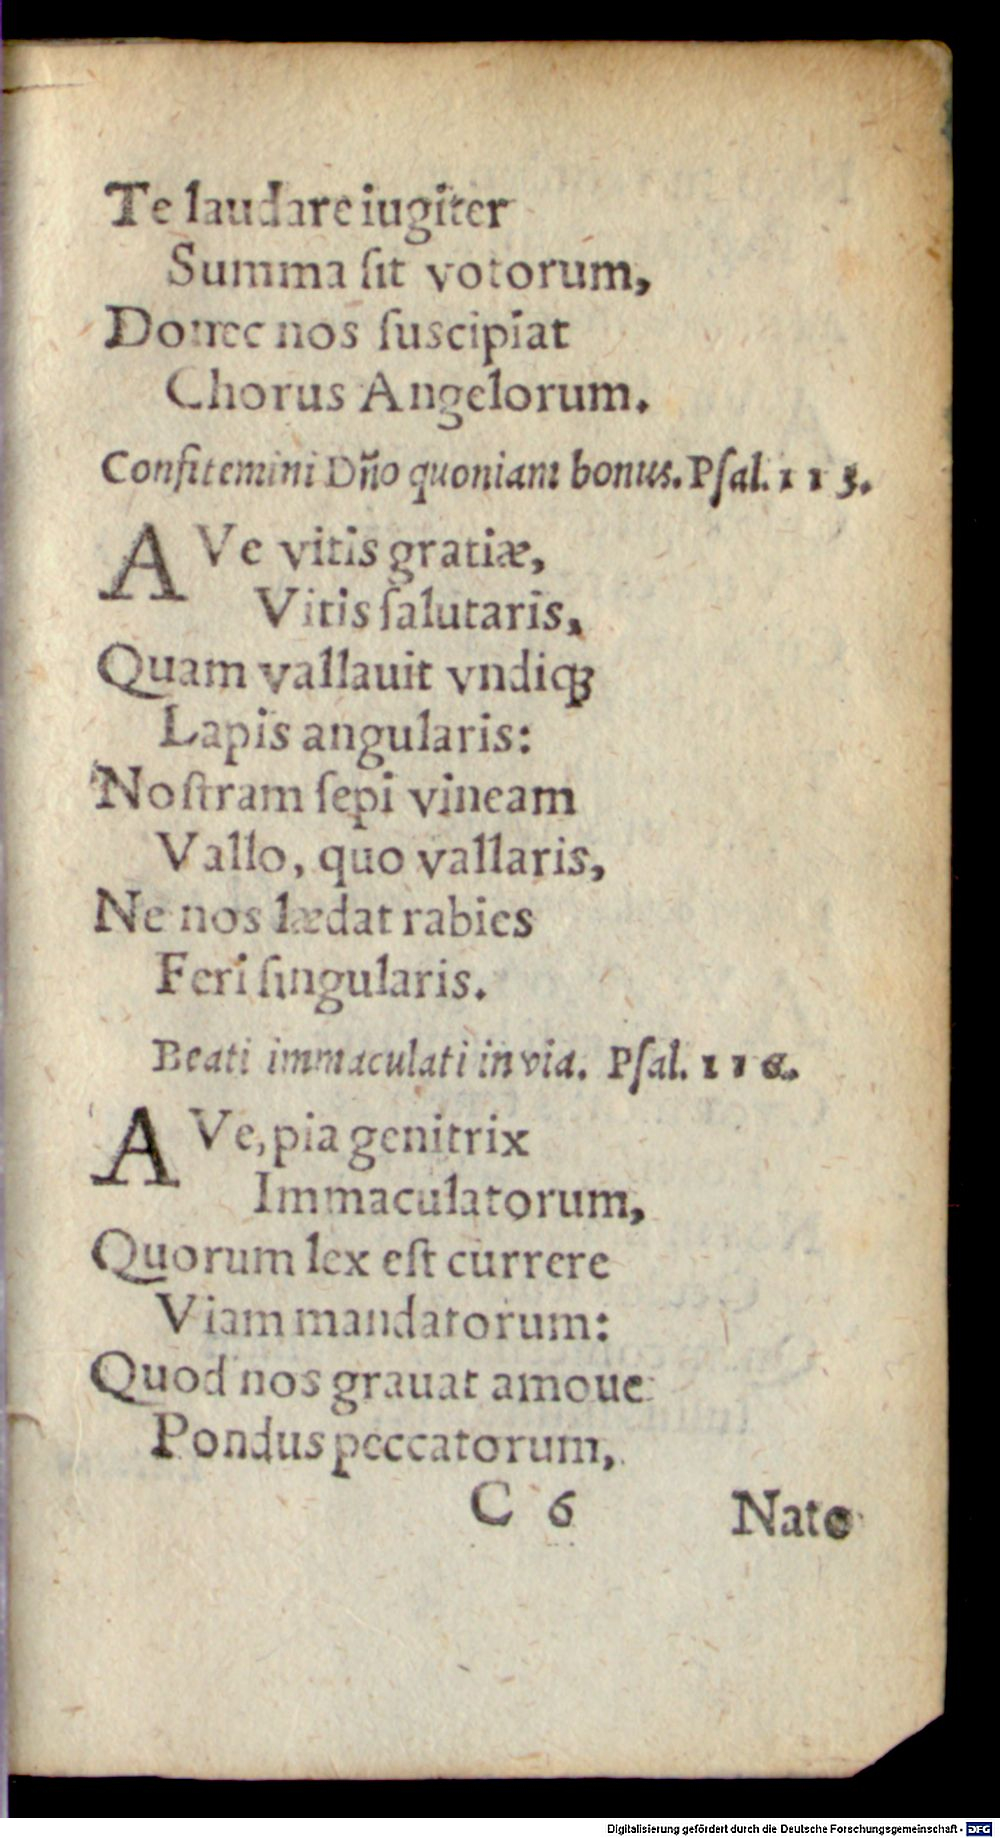 Te laudare iugiter
Summa ſit votorum,
Donec nos ſuscipiat
Chorus Angelorum.
Confitemini Dño quoniam bonus. Pſal. 115.
AVe vitis gratiæ,
Vitis ſalutaris,
Quam vallauit vndiq;
Lapis angularis:
Noſtram ſepi vineam
Vallo, quo vallaris,
Ne nos lædat rabies
Feri ſingularis.
Beati immaculati in via. Pſal. 116.
AVe, pia genitrix
Immaculatorum,
Quorum lex eſt currere
Viam mandatorum:
Quod nos grauat amoue
Pondus peccatorum,
C 6 Nato
Digitalisierung gefördert durch die Deutsche Forschungsgemeinschaft - DFG